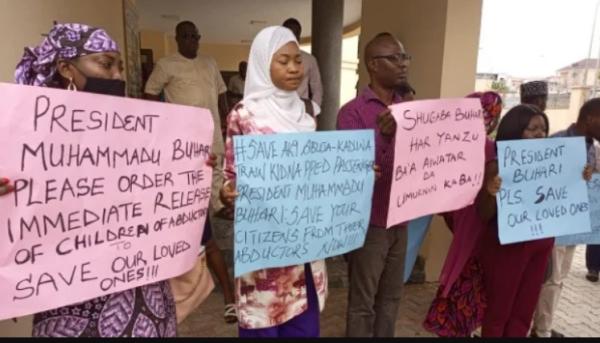 PRESIDENT
MUHAMMADU BUHARI
PLEASE ORDER THE
IMMEDIATE RELEASE
OF CHILDREN OF ABDUCTORS
TO
SAVE OUR LOVED
ONES!!!
PRESIDENT MUHAMMADU
BUHARI: SAVE YOUR
CITIZENS FROM THEIR
ABDUCTORS NOW!!!
SHUGABA BUHARI
HAR YANZU
BA'A AIWATAR
DA
UMURNIN KA BA!!
PRESIDENT
BUHARI
PLS SAVE
OUR LOVED ONES
!!!